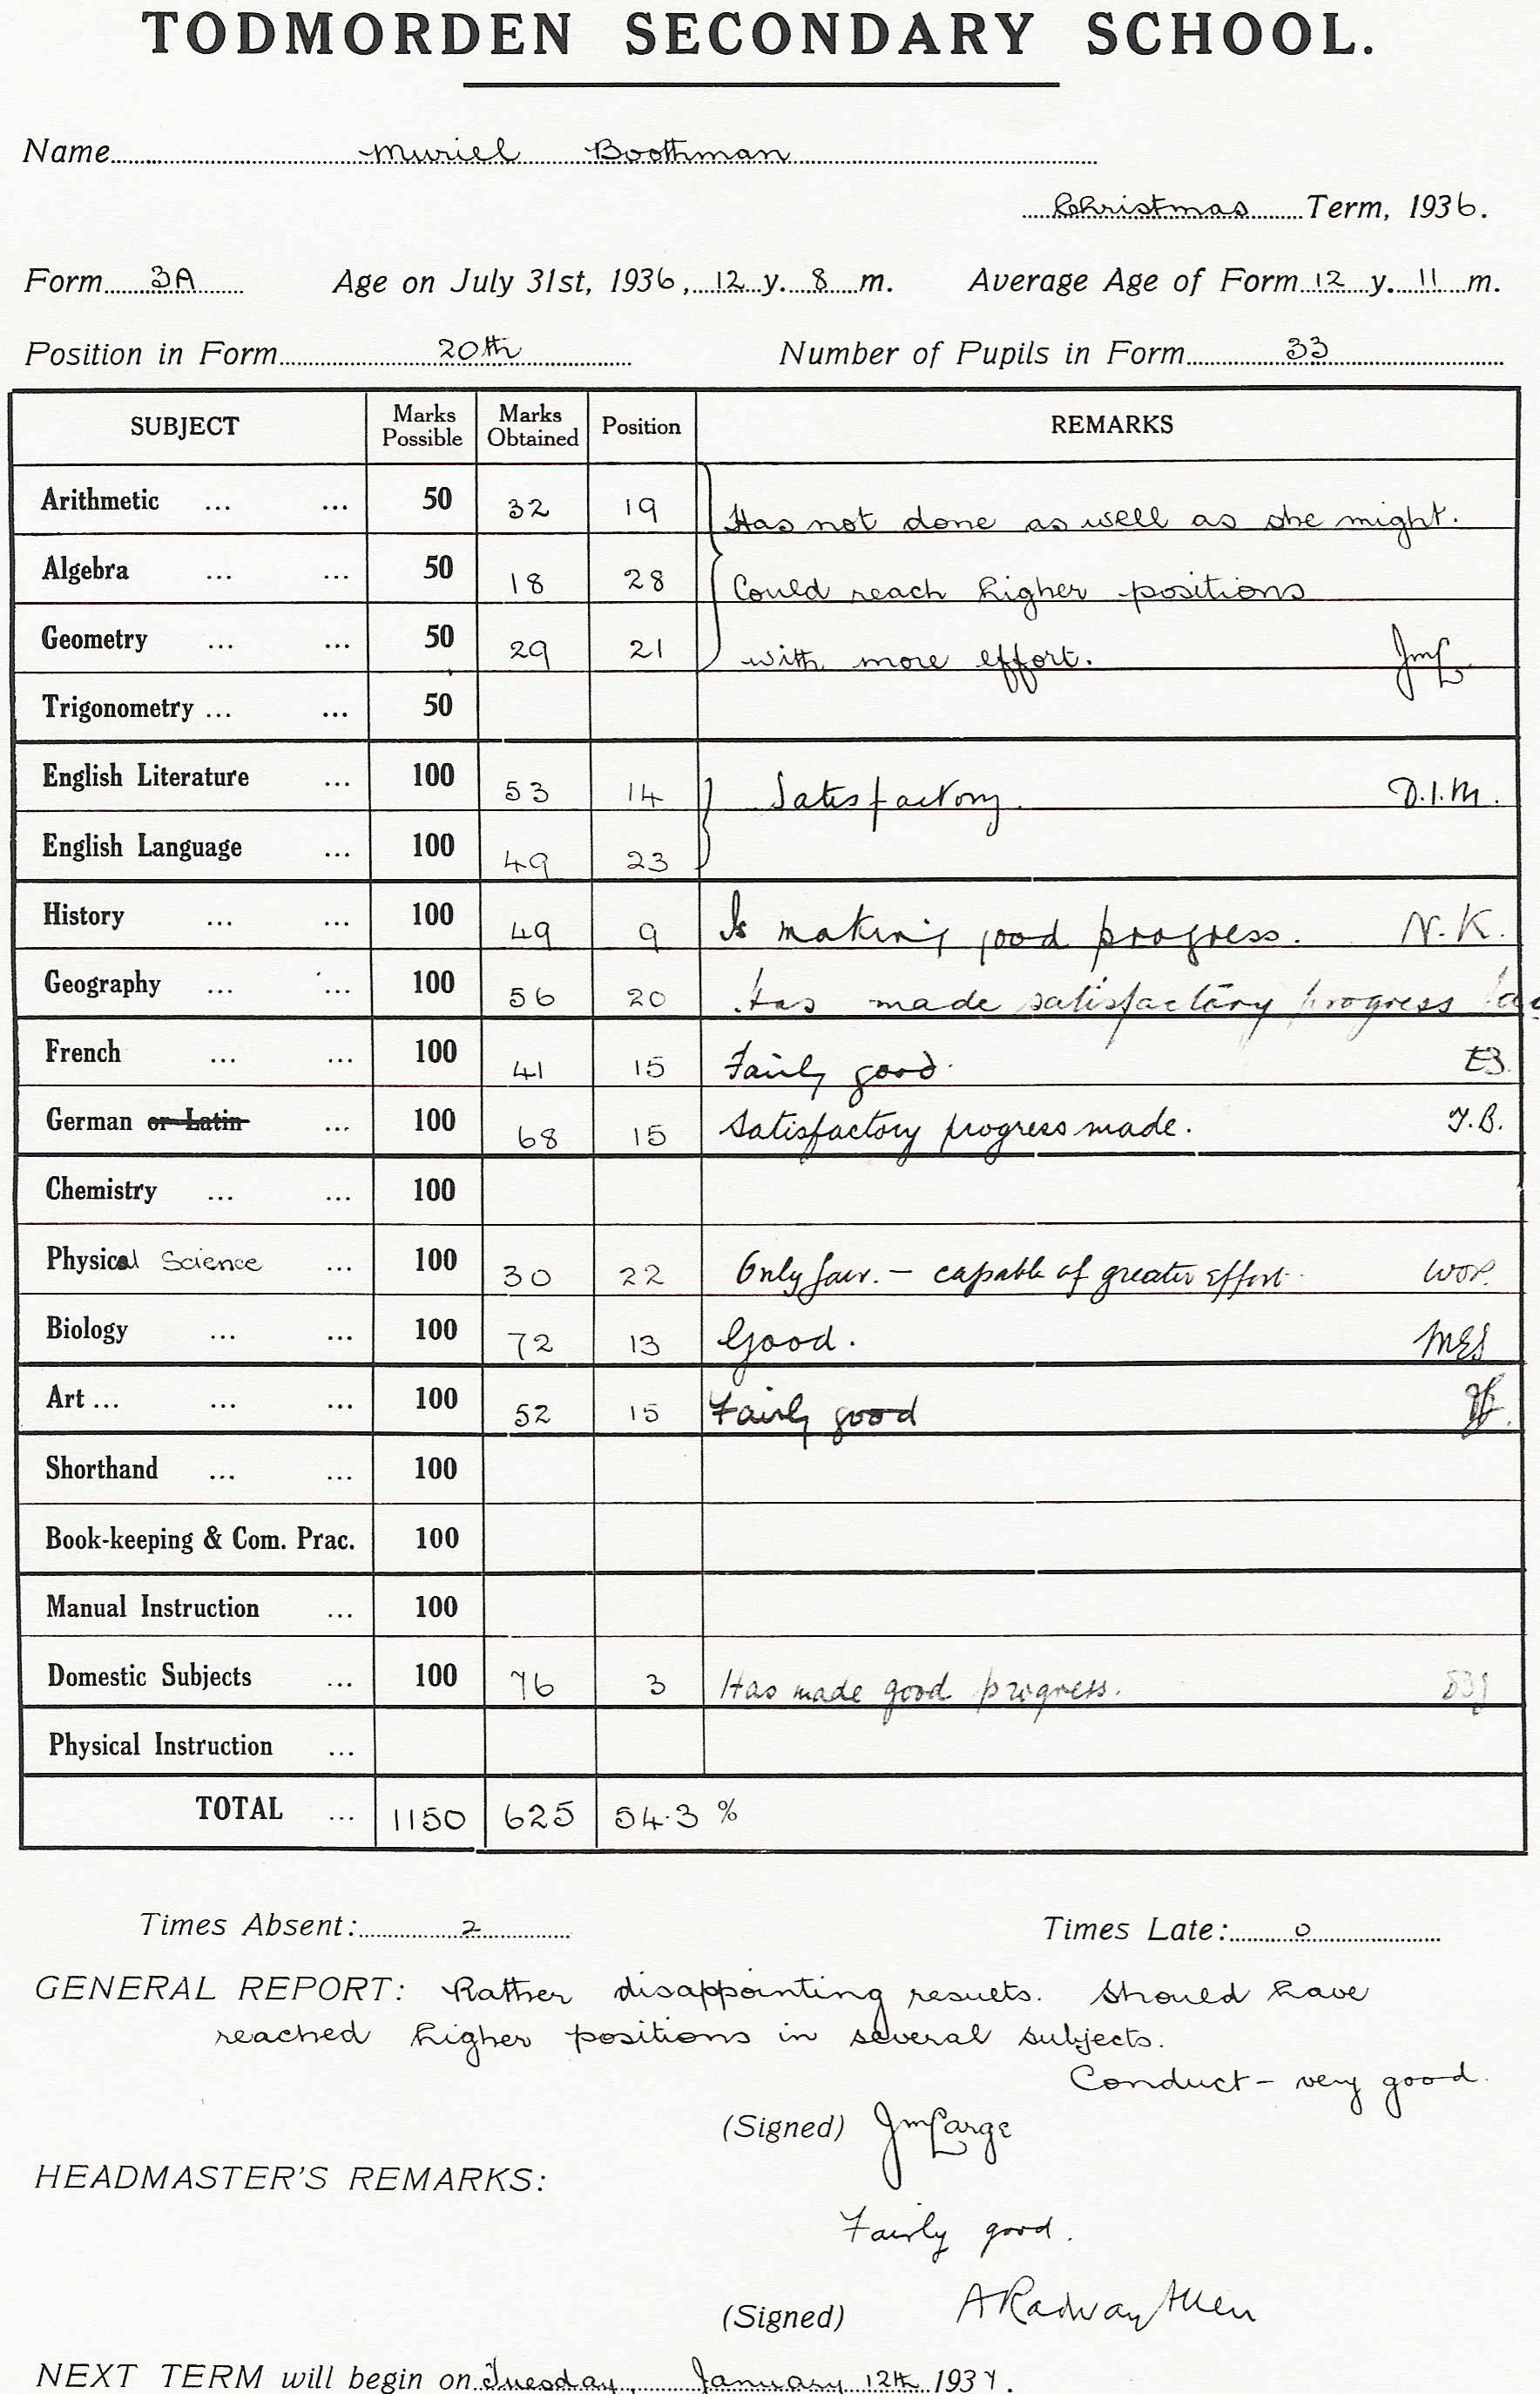 TODMORDEN SECONDARY SCHOOL.
Name Muriel Boothman
Christmas Term, 1936.
Form 3A Age on July 31st, 1936, 12 y. 8 m. Average Age of Form 12 y. 11 m.
Position in Form 20th Number of Pupils in Form 33
SUBJECT Marks Possible Marks Obtained Position REMARKS
Arithmetic ... ... 50 32 19 Has not done as well as she might.
Algebra ... ... 50 18 28 Could reach higher positions
Geometry ... ... 50 29 21 with more effort. JmL
Trigonometry ... ... 50
English Literature ... 100 53 14 Satisfactory. D.I.M.
English Language ... 100 49 23
History ... ... 100 49 9 Is making good progress. N.K.
Geography ... ... 100 56 20 Has made satisfactory progress
French ... ... 100 41 15 Fairly good. EB.
German or Latin ... 100 68 15 Satisfactory progress made. T.B.
Chemistry ... ... 100
Physical Science ... 100 30 22 Only fair. – capable of greater effort. WOP.
Biology ... ... 100 72 13 Good. MES
Art ... ... ... 100 52 15 Fairly good
Shorthand ... ... 100
Book-keeping & Com. Prac. 100
Manual Instruction ... 100
Domestic Subjects ... 100 76 3 Has made good progress.
Physical Instruction ...
TOTAL ... 1150 625 54.3 %
Times Absent: 2 Times Late: 0
GENERAL REPORT: Rather disappointing results. Should have
reached higher positions in several subjects.
Conduct – very good.
(Signed) JmLarge
HEADMASTER'S REMARKS:
Fairly good.
(Signed) A Radway Allen
NEXT TERM will begin on Tuesday, January 12th 1937.